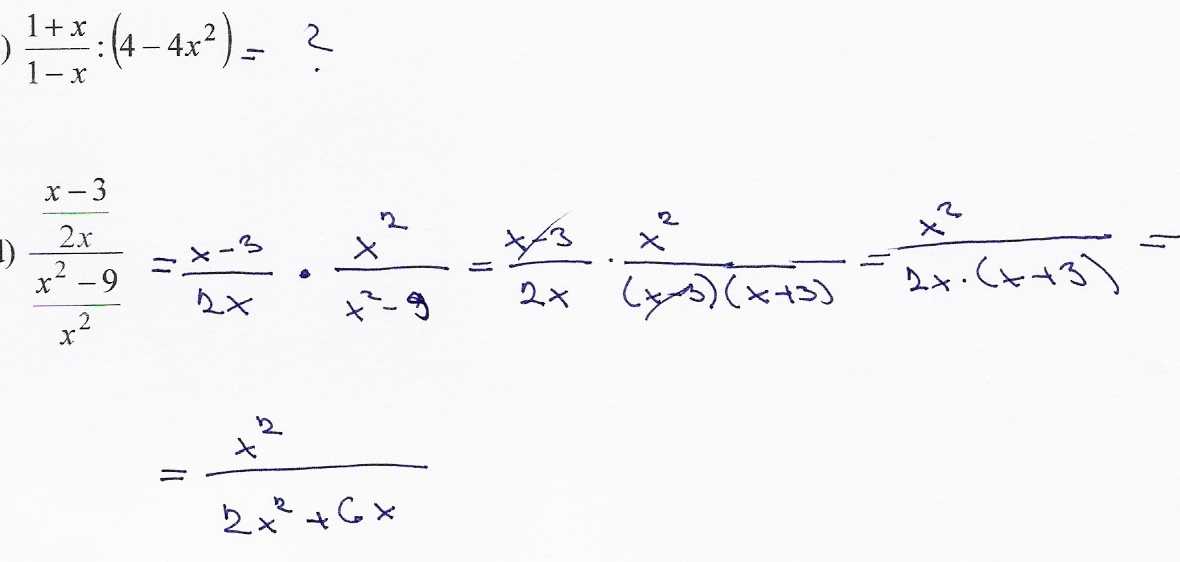 ) (1+x)/(1−x) : (4 − 4x²) = ?
) ((x−3)/(2x))/((x²−9)/(x²)) = (x−3)/(2x) • x²/(x²−9) = (x−3)/(2x) · x²/((x−3)(x+3)) = x²/(2x·(x+3)) =
= x²/(2x²+6x)